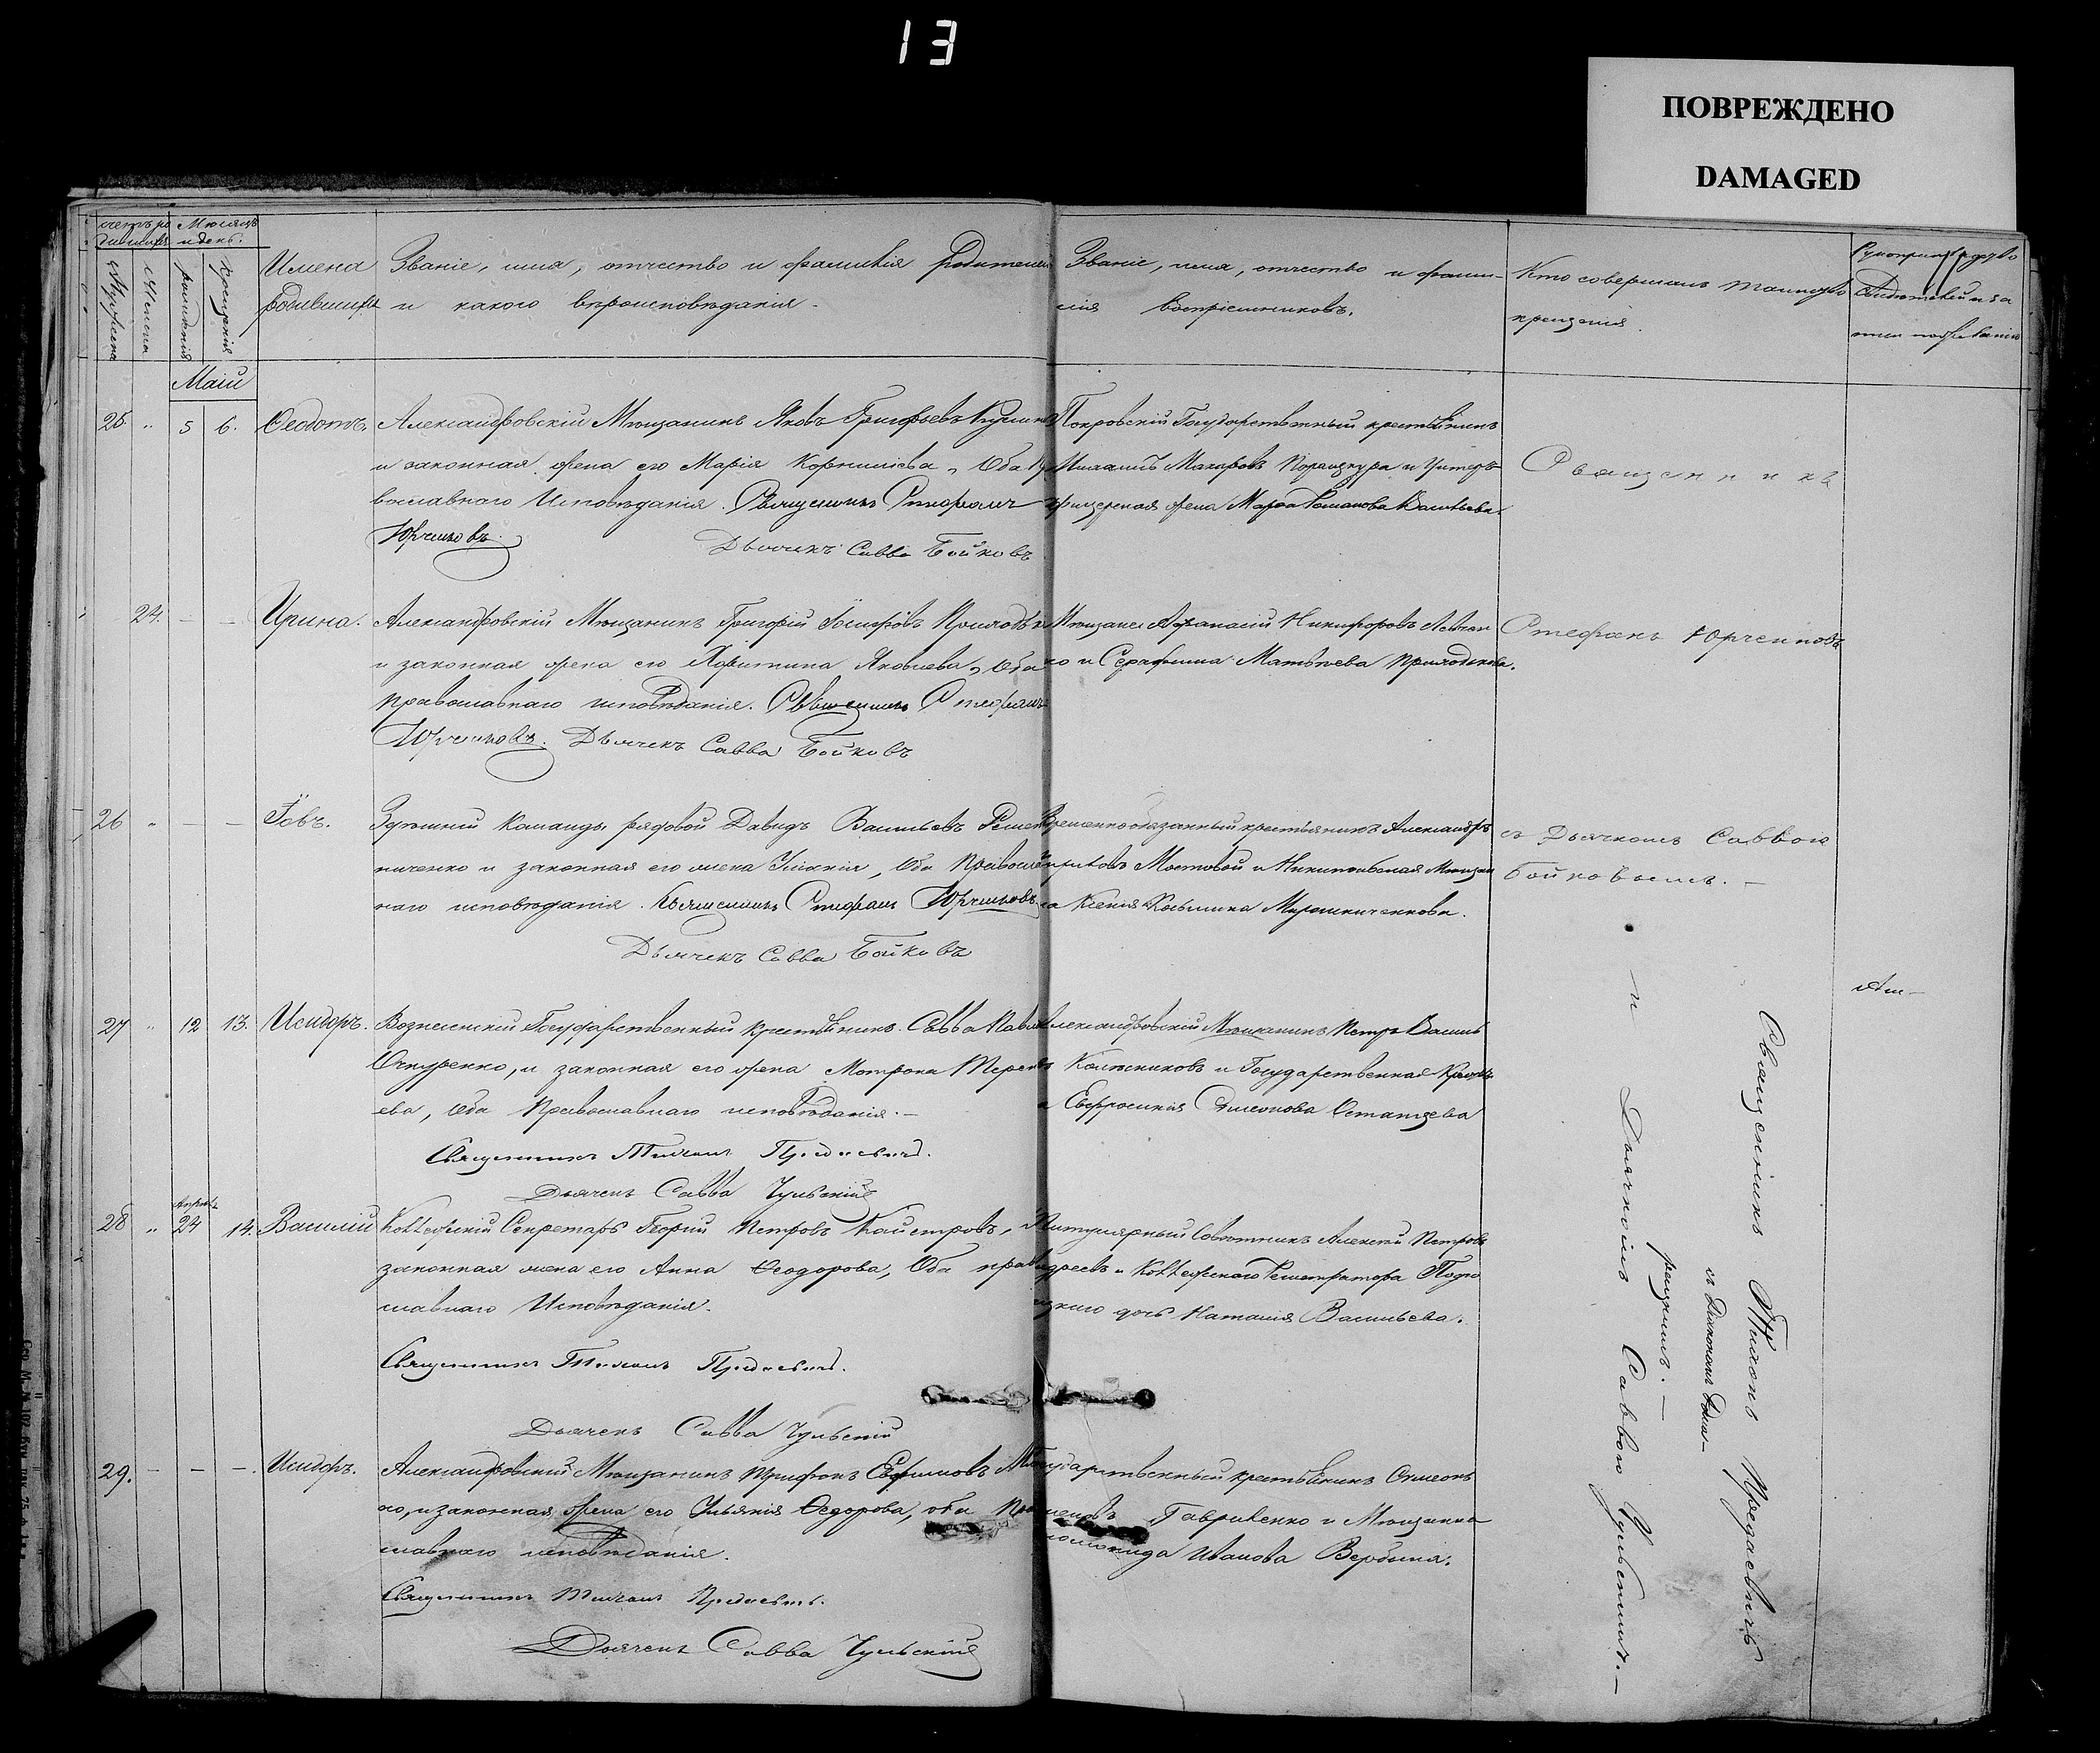 13
ПОВРЕЖДЕНО
DAMAGED
Мѣсяцъ
и день.
Мужеска
Женска
рожденія
крещенія
Имена
родившихся
Званіе, имя, отчество и фамилія родителей
и какого вѣроисповѣданія.
Званіе, имя, отчество и фами-
лія воспріемниковъ.
Кто совершалъ таинство
крещенія.
Маій
25. " 5 6. Ѳеодотъ.
Александровскій Мѣщанинъ Яковъ Григорьевъ
и законная жена его Марія Корнилієва, Оба
вославнаго Исповѣданія. Священникъ Стефанъ
Юрченковъ.
Дьячекъ Савва Бойковъ
Покровскій Государственный крестьянинъ
Михаилъ Макаровъ и Унтеръ
жена Марѳа Романова Васильева.
Священникъ
24. — — Ирина.
Александровскій Мѣщанинъ Григорій Іосифовъ
и законная жена его Яковлева, Оба
православнаго исповѣданія. Священникъ Стефанъ
Юрченковъ. Дьячекъ Савва Бойковъ
Мѣщане Аѳанасій Никифоровъ
ко и Серафима Матвѣева Приходькова.
Стефанъ Юрченковъ
26 " — — Іовъ.
команды рядовой Давидъ Васильевъ
ниченко и законная его жена Уліянія, Оба Правосла
наго исповѣданія. Священникъ Стефанъ Юрченковъ
Дьячекъ Савва Бойковъ
Временнообязанный крестьянинъ Александръ
Мостовой и Никопольская Мѣщан
ка Ксенія Косьмина Мирошниченкова.
съ Дьячкомъ Саввою
Бойковымъ. —
27 " 12 13. Исидоръ.
Вознесенскій Государственный крестьянинъ Савва
Очкуренко, и законная его жена Мотрона
ева, Оба Православнаго исповѣданія. —
Священникъ Тихонъ Предаевичъ.
Дьячекъ Савва Чульскій
Александровскій Мѣщанинъ Петръ Василь
Колѣсниковъ и Государственная
Евфросинія Симеонова Остапцева
28 " 24 14. Василій
Коллежскій Секретарь Георгій Петровъ Кайстровъ,
законная жена его Анна Ѳеодорова, Оба право
славнаго Исповѣданія.
Священникъ Тихонъ Предаевичъ.
Дьячекъ Савва Чульскій
Титулярный Совѣтникъ Алексѣй Петровъ
и Коллежскаго Регистратора
дочь Наталія Васильева.
29. — — — Исидоръ.
Александровскій Мѣщанинъ Трифонъ Евфимовъ
ко, и законная жена его Ульянія Ѳедорова, оба
славнаго исповѣданія.
Священникъ Тихонъ Предаевичъ.
Дьячекъ Савва Чульскій
Государственный крестьянинъ Симеонъ
Гавриленко и Мѣщанка
Иванова Вербина.
Священникъ Тихонъ Предаевичъ
и Дьячкомъ Саввою Чульскимъ. —